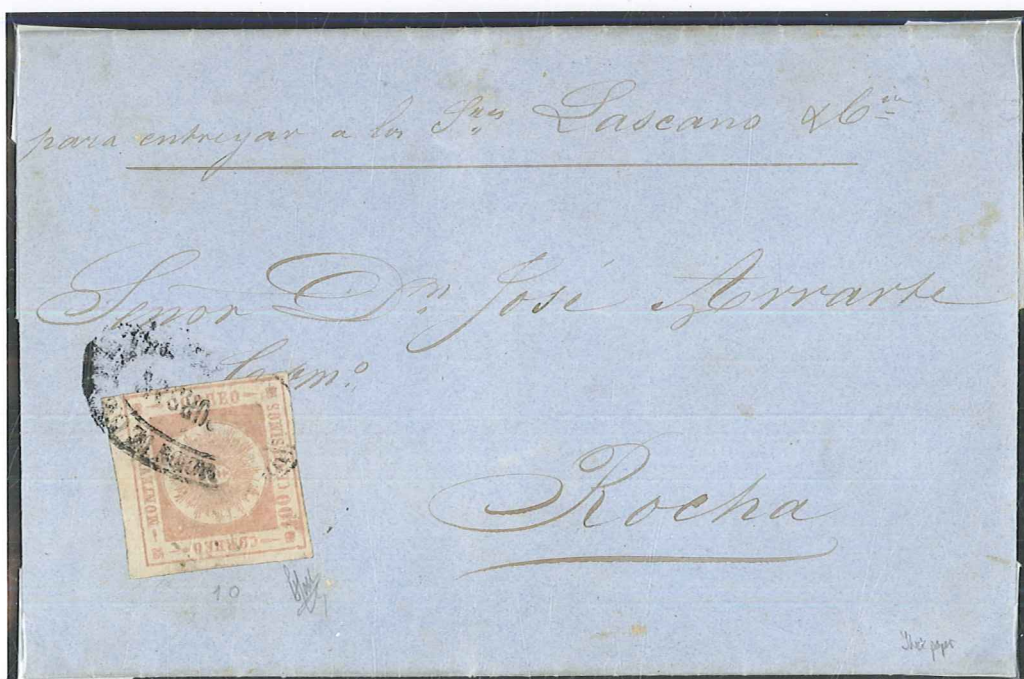 para entregar a los S.res Lascano & C.ia
Señor D.n José Arrarte
Rocha
CORREO
MONTEV
100 CENTESIMOS
CORREO
10
Thick paper